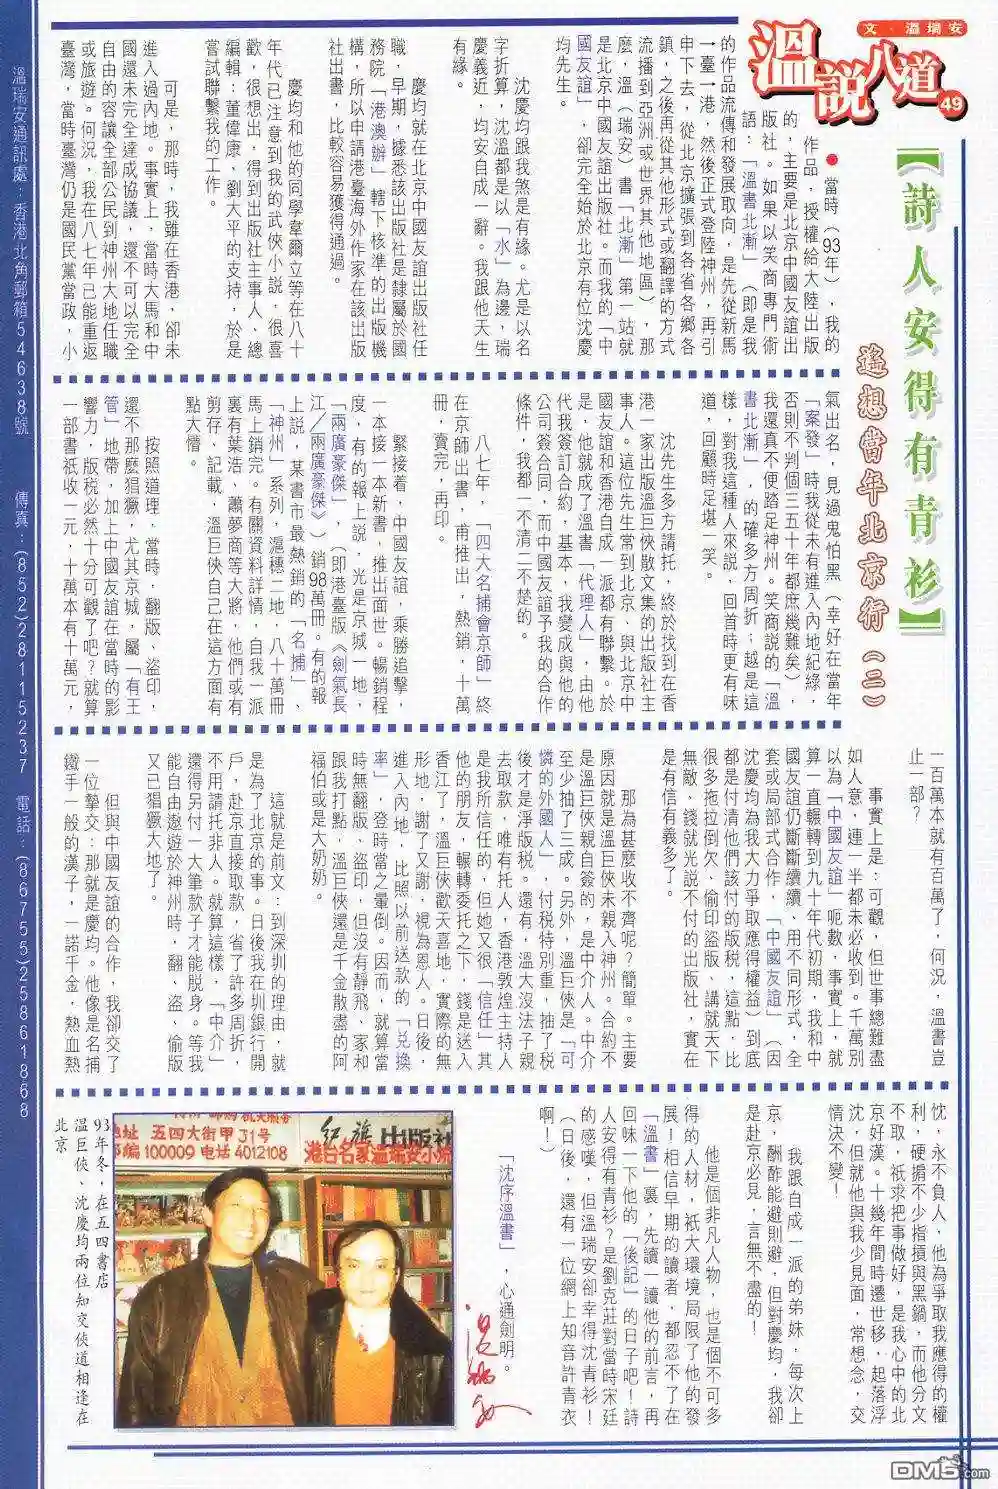 文‧溫瑞安
溫說八道
49
【詩人安得有青衫】
遙想當年北京行(二)
●當時(93年),我的
作品,授權給大陸出版
的,主要是北京中國友誼出
版社。如果以笑商專門術
語:「溫書北漸」(即是我
的作品流傳和發展取向,是先從新馬
→臺→港,然後正式登陸神州,再引
申下去,從北京擴張到各省各鄉各
鎮,之後再從其他形式或翻譯的方式
流播到亞洲或世界其他地區),那
麼,溫(瑞安)書「北漸」第一站就
是北京中國友誼出版社。而我的「中
國友誼」,卻完全始於北京有位沈慶
均先生。
沈慶均跟我煞是有緣。尤是以名
字折算,沈溫都是以「水」為邊,瑞
慶義近,均安自成一辭。我跟他天生
有緣。
慶均就在北京中國友誼出版社任
職,早期,據悉該出版社是隸屬於國
務院「港澳辦」轄下核準的出版機
構,所以申請港臺海外作家在該出版
社出書,比較容易獲得通過。
慶均和他的同學韋爾立等在八十
年代已注意到我的武俠小說,很喜
歡,很想出,得到出版社主事人、總
編輯:董偉康,劉大平的支持,於是
嘗試聯繫我的工作。
可是,那時,我雖在香港,卻未
進入過內地。事實上,當時大馬和中
國還未完全達成協議,還不可以完全
自由的容讓全部公民到神州大地任職
或旅遊。何況,我在八七年已能重返
臺灣,當時臺灣仍是國民黨當政,小
氣出名,見過鬼怕黑(幸好在當年
「案發」時我從未有進入內地紀綠,
否則不判個三五十年都庶幾難矣),
我還真不便踏足神州。笑商說的「溫
書北漸」,的確多方周折;越是這
樣,對我這種人來說,回首時更有味
道,回顧時足堪一笑。
沈先生多方請托,終於找到在香
港一家出版溫巨俠散文集的出版社主
事人。這位先生常到北京、與北京中
國友誼和香港自成一派都有聯繫。於
是,他就成了溫書「代理人」,由他
代我簽訂合約,基本,我變成與他的
公司簽合同,而中國友誼予我的合作
條件,我都一不清二不楚的。
八七年,「四大名捕會京師」終
在京師出書,甫推出,熱銷,十萬
冊,賣完,再印。
緊接着,中國友誼,乘勝追擊,
一本接一本新書,推出面世。暢銷程
度,有的報上說,光是京城一地,
「兩廣豪傑」,(即港臺版《劍氣長
江/兩廣豪傑》)銷98萬冊。有的報
上說,某書市最熱銷的「名捕」,
「神州」系列,滬穗二地,八十萬冊
馬上銷完。有關資料詳情,自我一派
裏有葉浩、蕭夢商等大將,他們或有
剪存、記載,溫巨俠自己在這方面有
點大懵。
按照道理,當時,翻版、盜印,
還不那麼猖獗,尤其京城,屬「有王
管」地帶,加上中國友誼在當時的影
響力,版税必然十分可觀了吧?就算
一部書祇收一元,十萬本有十萬元,
一百萬本就有百萬了,何況,溫書豈
止一部?
事實上是:可觀,但世事總難盡
如人意,連一半都未必收到。千萬別
以為「中國友誼」呃數,事實上,就
算一直輾轉到九十年代初期,我和中
國友誼仍斷斷續續、用不同形式,全
套或局部式合作,「中國友誼」(因
沈慶均為我大力爭取應得權益)到底
都是付清他們該付的版税,這點,比
很多拖拉倒欠、偷印盜版、講就天下
無敵、錢就光説不付的出版社,實在
是有信有義多了。
那為甚麼收不齊呢?簡單。主要
原因就是溫巨俠未親入神州。合約不
是溫巨俠親自簽的,是中介人。中介
至少抽了三成。另外,溫巨俠是「可
憐的外國人」,付税特別重,抽了税
後才是淨版税。還有,溫大沒法子親
去取款,唯有托人,香港敦煌主持人
是我所信任的,但她又很「信任」其
他的朋友,輾轉委托之下,錢是送入
香江了,溫巨俠歡天喜地,實際的無
形地,謝了又謝,視為恩人。日後,
進入內地,比照以前送款的「兌換
率」,登時當之暈倒。因而,就算當
時無翻版、盜印,但沒有靜飛、家和
跟我打點,溫巨俠還是千金散盡的阿
福伯或是大奶奶。
這就是前文:到深圳的理由,就
是為了北京的事。日後我在圳銀行開
戶,赴京直接取款,省了許多周折,
不用請托非人。就算這樣,「中介」
還得另付一大筆款子才能脱身。等我
能自由遨遊於神州時,翻、盜、偷版
又已猖獗大地了。
但與中國友誼的合作,我卻交了
一位摯交:那就是慶均。他像是名捕
鐵手一般的漢子,一諾千金,熱血熱
忱,永不負人,他為爭取我應得的權
利,硬揹不少指摃與黑鍋,而他分文
不取,祇求把事做好,是我心中的北
京好漢。十幾年間時遷世移,起落浮
沈,但就他與我少見面,常想念,交
情決不變!
我跟自成一派的弟妹,每次上
京,酬酢能避則避,但對慶均,我卻
是赴京必見,言無不盡的!
他是個非凡人物,也是個不可多
得的人材,祇大環境局限了他的發
展!相信早期的讀者,都忍不了在
「溫書」裏,先讀一讀他的前言,再
回味一下他的「後記」的日子吧!詩
人安得有青衫?是劉克莊對當時宋廷
的感嘆,但溫瑞安卻幸得沈青衫!
(日後,還有一位網上知音許青衣
啊!)
「沈序溫書」,心通劍明。
溫瑞安
社址 五四大街甲31号
邮编 100009 电话 4012108
红旗出版社
港台名家溫瑞安小说
93年冬,在五四書店
溫巨俠、沈慶均兩位知交俠道相逢在
北京
溫瑞安通訊處:香港北角郵箱54638號 傳真:(852)28115237 電話:(86755)25861868
DM5.com